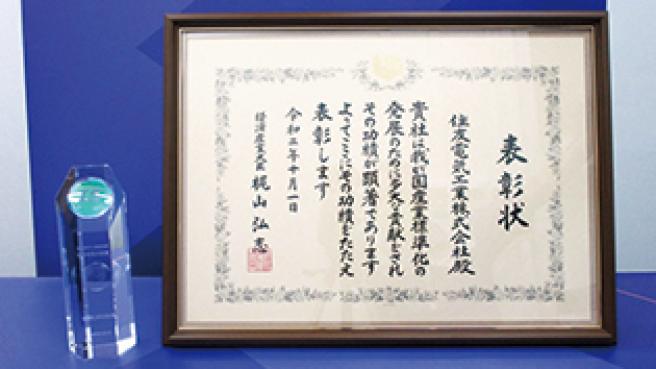 表彰状
住友電気工業株式会社殿
貴社は我が国産業標準化の
発展のために多大な貢献をされ
その功績が顕著であります
よってここにその功績をたたえ
表彰します
令和二年十月一日
経済産業大臣 梶山弘志